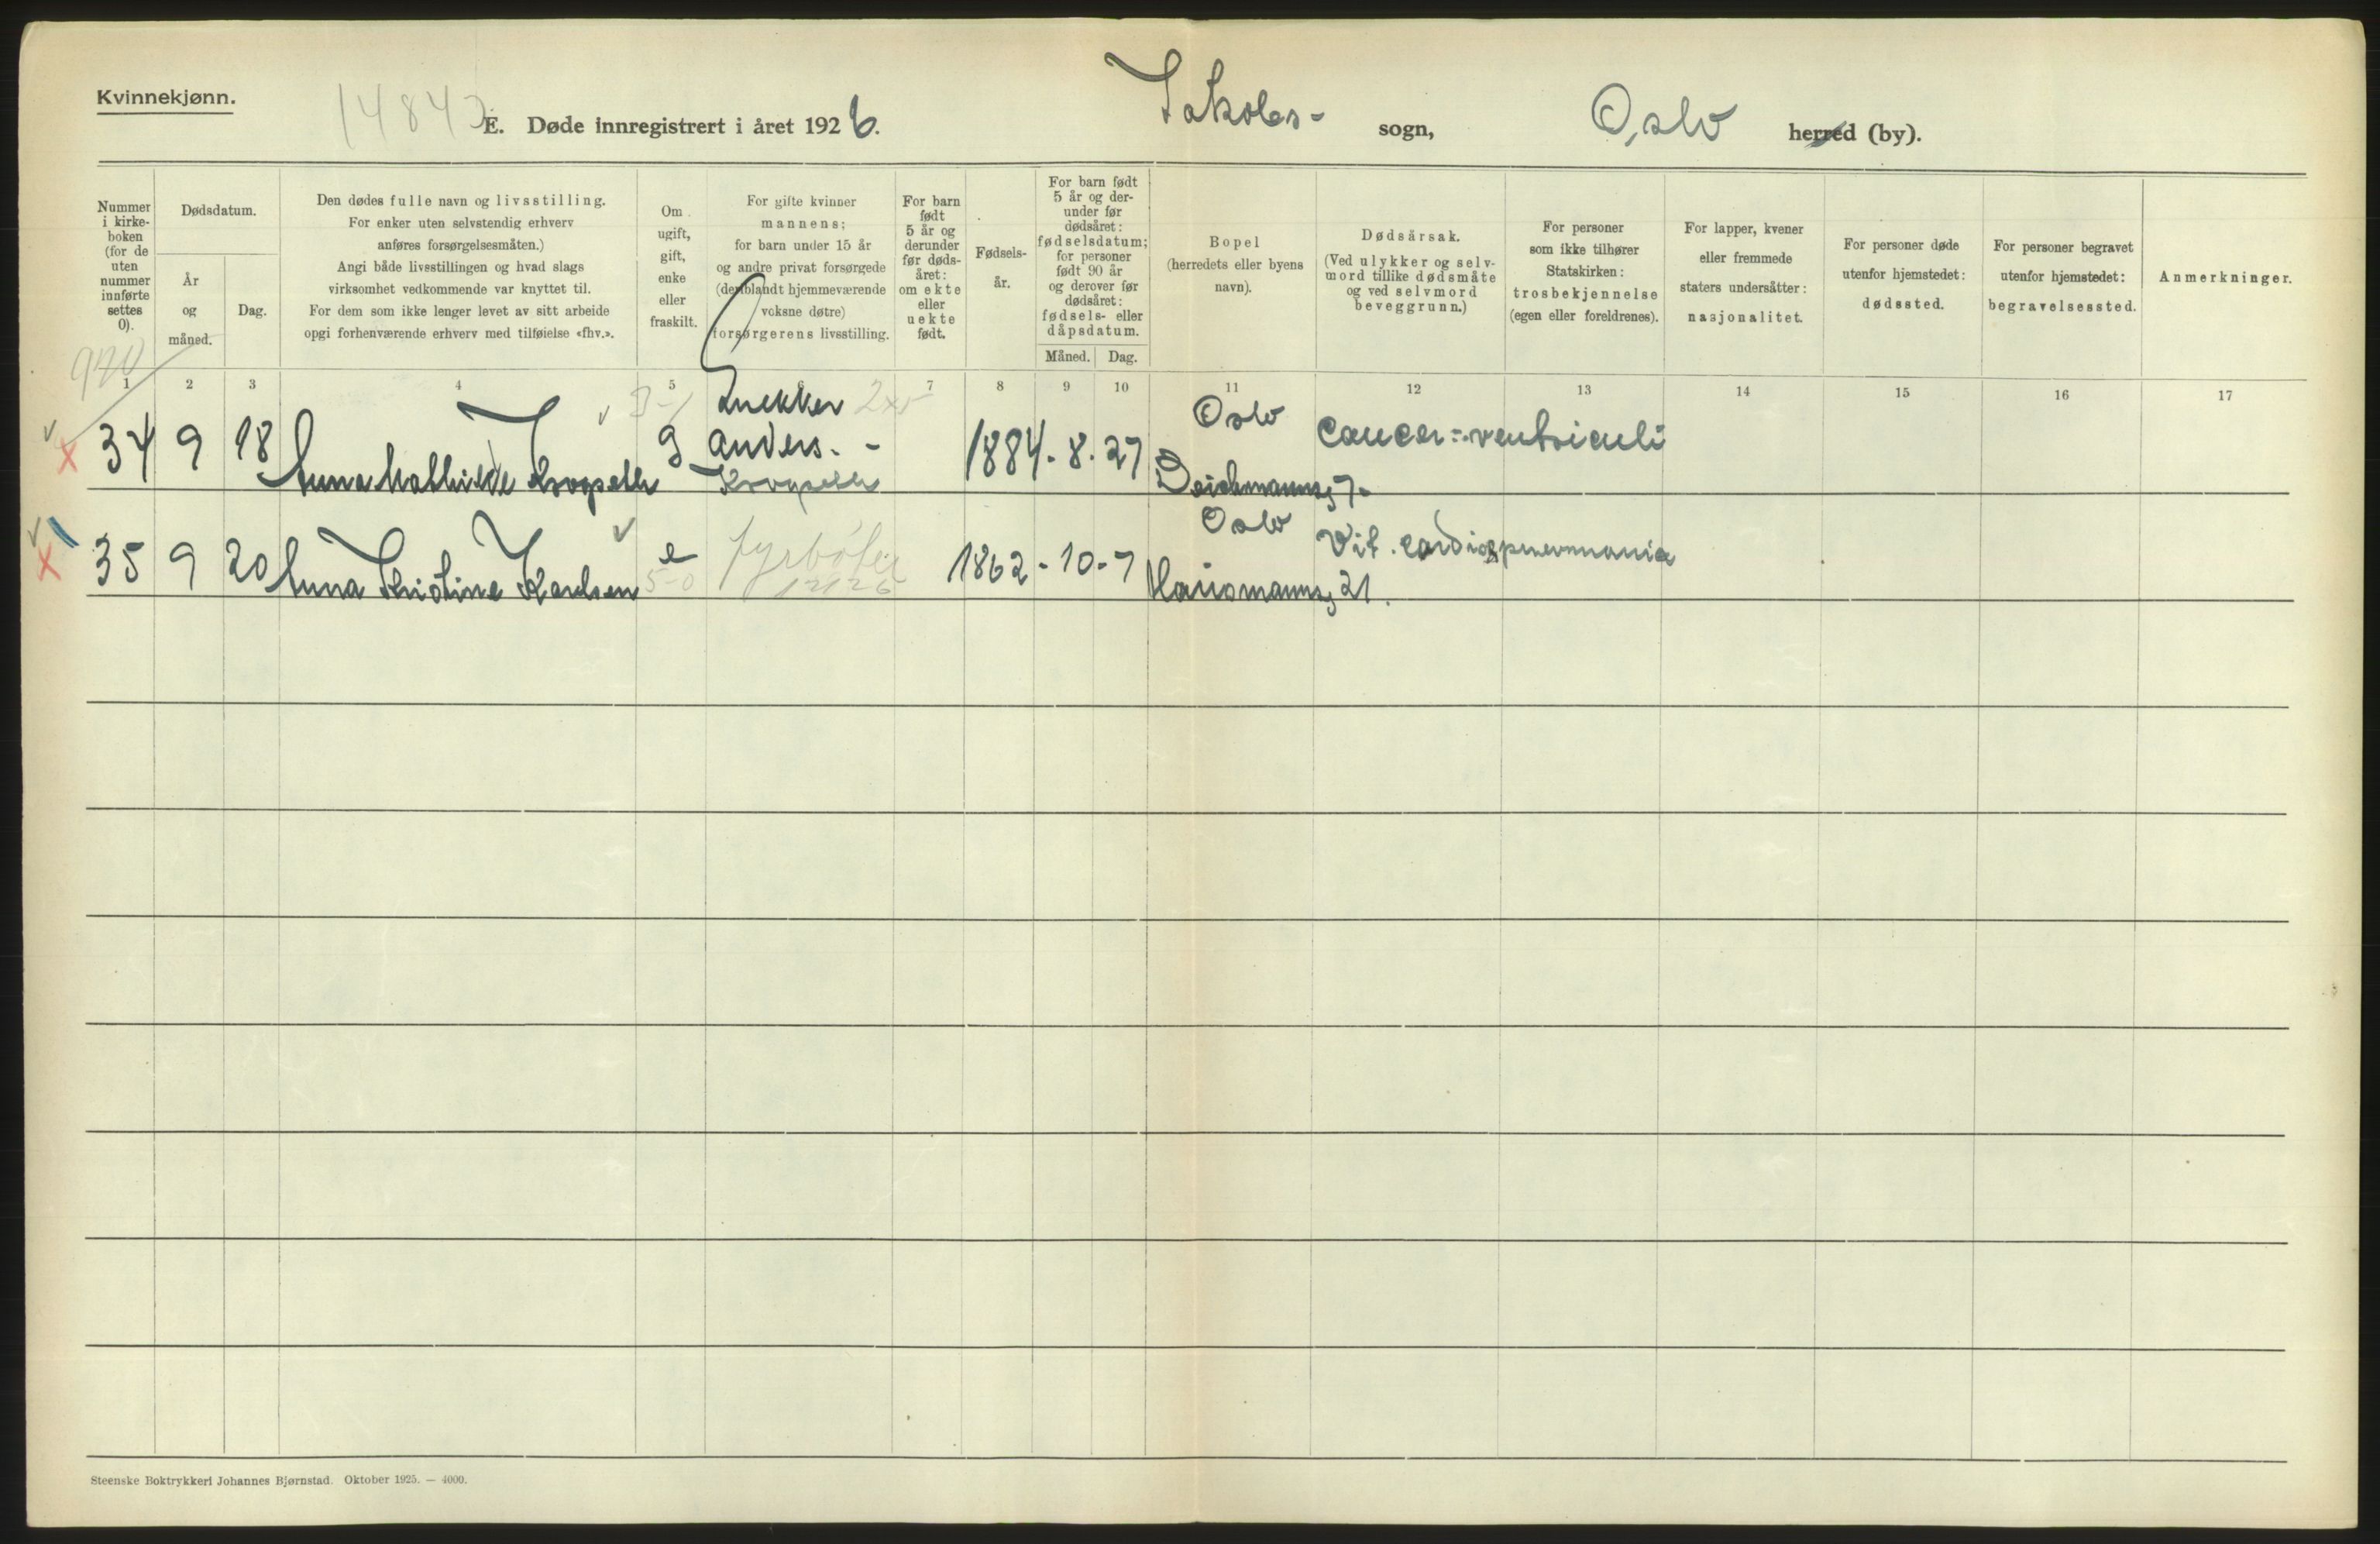 Kvinnekjønn.
E. Døde innregistrert i året 1926. Jakobs- sogn, Oslo herred (by).
Nummer i kirke-boken (for de uten nummer innførte settes 0).
Dødsdatum.
År og måned.
Dag.
Den dødes fulle navn og livsstilling.
For enker uten selvstendig erhverv
anføres forsørgelsesmåten.)
Angi både livsstillingen og hvad slags
virksomhet vedkommende var knyttet til.
For dem som ikke lenger levet av sitt arbeide
opgi forhenværende erhverv med tilføielse «fhv.».
Om ugift, gift, enke eller fraskilt.
For gifte kvinner
mannens;
for barn under 15 år
og andre privat forsørgede
(deriblandt hjemmeværende
voksne døtre)
forsørgerens livsstilling.
For barn født 5 år og derunder før døds-året: om ekte eller uekte født.
Fødsels-år.
For barn født
5 år og der-
under før
dødsåret:
fødselsdatum;
for personer
født 90 år
og derover før
dødsåret:
fødsels- eller
dåpsdatum.
Måned. Dag.
Bopel
(herredets eller byens
navn).
Dødsårsak.
(Ved ulykker og selv-
mord tillike dødsmåte
og ved selvmord
beveggrunn.)
For personer
som ikke tilhører
Statskirken:
trosbekjennelse
(egen eller foreldrenes).
For lapper, kvener
eller fremmede
staters undersåtter:
nasjonalitet.
For personer døde
utenfor hjemstedet:
dødssted.
For personer begravet
utenfor hjemstedet:
begravelsessted.
Anmerkninger.
1 2 3 4 5 6 7 8 9 10 11 12 13 14 15 16 17
34 9 18 Anna Mathilde g Anders. - 1884 - 8 - 27 Oslo Cancer ventriculi
Deichmannsg 7.
35 9 20 Anna Kristine Karlsen e fyrbøter 1862 - 10 - 7 Oslo Vit. cordis, pneumonia
Hausmannsg 21.
Steenske Boktrykkeri Johannes Bjørnstad. Oktober 1925. — 4000.